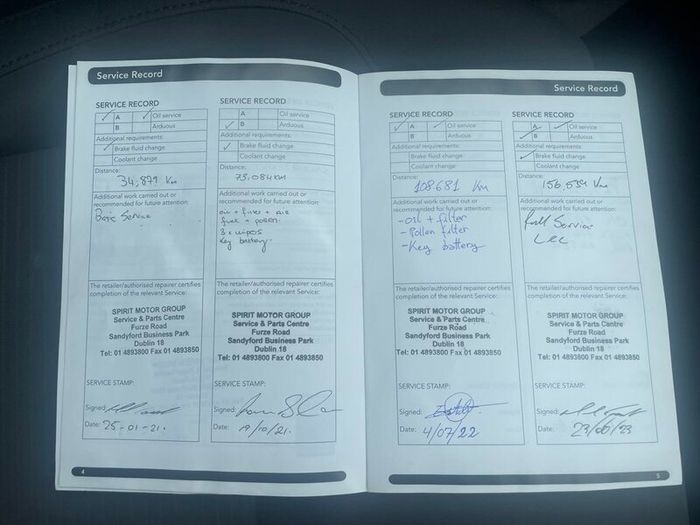 Service Record
SERVICE RECORD
A Oil service
B Arduous
Additional requirements:
Brake fluid change
Coolant change
Distance:
34,879 Km
Additional work carried out or
recommended for future attention:
Basic Service
The retailer/authorised repairer certifies
completion of the relevant Service:
SPIRIT MOTOR GROUP
Service & Parts Centre
Furze Road
Sandyford Business Park
Dublin 18
Tel: 01 4893800 Fax 01 4893850
SERVICE STAMP:
Signed:
Date: 25-01-21.
4
SERVICE RECORD
A Oil service
B Arduous
Additional requirements:
Brake fluid change
Coolant change
Distance:
73,084km
Additional work carried out or
recommended for future attention:
fuel + pollen
3 x wipers
Key battery
The retailer/authorised repairer certifies
completion of the relevant Service:
SPIRIT MOTOR GROUP
Service & Parts Centre
Furze Road
Sandyford Business Park
Dublin 18
Tel: 01 4893800 Fax 01 4893850
SERVICE STAMP:
Signed:
Date: 19/10/21.
Service Record
SERVICE RECORD
A Oil service
B Arduous
Additional requirements:
Brake fluid change
Coolant change
Distance:
108681 Km
Additional work carried out or
recommended for future attention:
- Oil + filter
- Pollen filter
- Key battery
The retailer/authorised repairer certifies
completion of the relevant Service:
SPIRIT MOTOR GROUP
Service & Parts Centre
Furze Road
Sandyford Business Park
Dublin 18
Tel: 01 4893800 Fax 01 4893850
SERVICE STAMP:
Signed:
Date: 4/07/22
SERVICE RECORD
A Oil service
B Arduous
Additional requirements:
Brake fluid change
Coolant change
Distance:
156,534 Km
Additional work carried out or
recommended for future attention:
Full Service
The retailer/authorised repairer certifies
completion of the relevant Service:
SPIRIT MOTOR GROUP
Service & Parts Centre
Furze Road
Sandyford Business Park
Dublin 18
Tel: 01 4893800 Fax 01 4893850
SERVICE STAMP:
Signed:
Date: 23/06/23
5